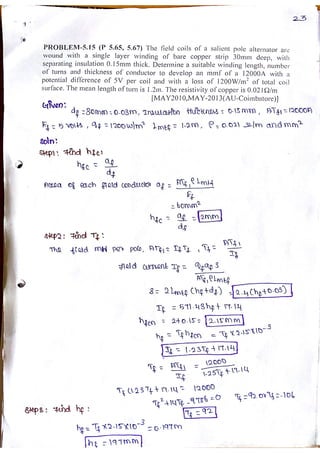 23
PROBLEM-5.15 (P 5.65, 5.67) The field coils of a salient pole alternator are
wound with a single layer winding of bare copper strip 30mm deep, with
separating insulation 0.15mm thick. Determine a suitable winding length, number
of turns and thickness of conductor to develop an mmf of a 12000A with a
potential difference of 5V per coil and with a loss of 1200W/m² of total coil
surface. The mean length of turn is 1.2m. The resistivity of copper is 0.021Ω/m
[MAY2010,MAY-2013(AU-Coimbatore)]
Given:
df = 30mm = 0.03m, Insulation thickness = 0.15mm, ATf1 = 12000A
Ef = 5 volts, qf = 1200w/m² Lmtf = 1.2m, ρ = 0.021 Ω/m and mm²
Soln:
Step1: Find hfc:
hfc = af / df
Area of each field conductor af = ATf1 ρ Lmtf / Ef
= 60mm²
hfc = af / df = 2mm
Step2: Find Tf:
The field mmf per pole, ATf1 = If Tf , Tf = ATf1 / If
Field current If = qf af S / ATf1 ρ Lmtf
S = 2 Lmtf (hf + df) = 2.4 (hf + 0.03)
If = 571.48hf + 17.14
hfcn = 2+0.15 = 2.15mm
hf = Tf hfcn = Tf x 2.15x10⁻³
If = 1.23Tf + 17.14
Tf = ATf1 / If = 12000 / 1.23Tf + 17.14
Tf (1.23Tf + 17.14 = 12000
Tf² + 14Tf - 9756 = 0 Tf = 92 or Tf = -106
Tf = 92
Step3: Find hf:
hf = Tf x 2.15x10⁻³ = 0.197m
hf = 197mm